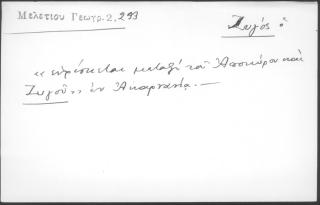 Μελετίου Γεωγρ. 2, 293
Ζυγός ὁ
«εὑρίσκεται μεταξὺ τοῦ Ἀποκούρου καὶ
Ζυγοῦ» ἐν Ἀκαρνανίᾳ.—